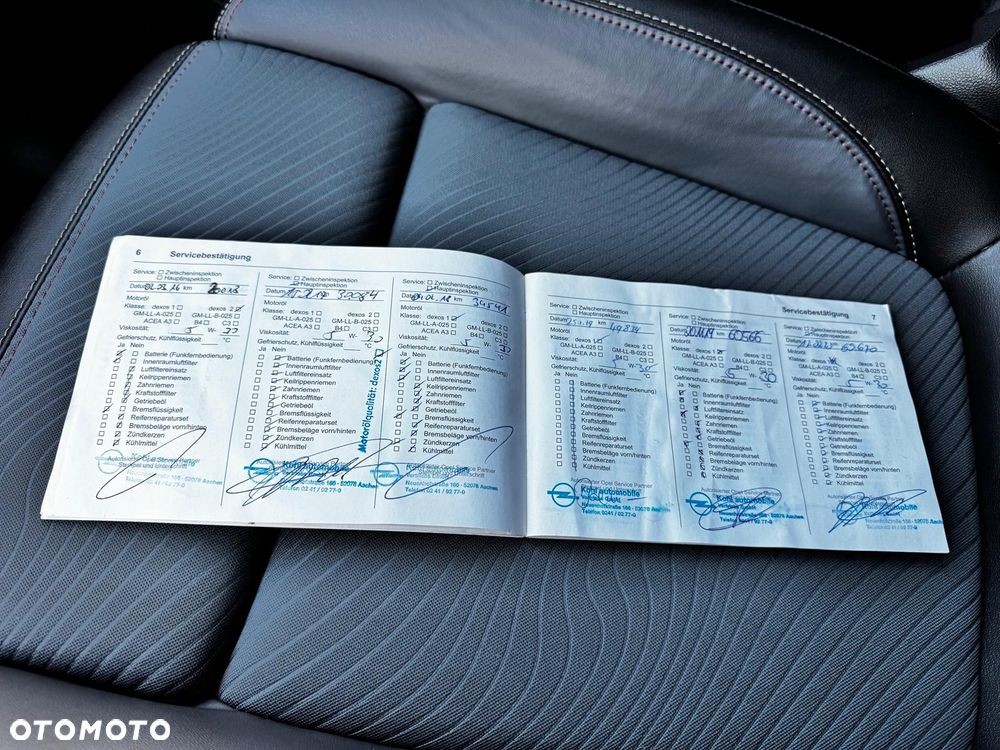 6 Servicebestätigung
Service: Zwischeninspektion
Hauptinspektion
Datum 02.02.16 km
Motoröl
Klasse: dexos 1 dexos 2
GM-LL-A-025 GM-LL-B-025
ACEA A3 B4 C3
Viskosität: 5 W- 30
Gefrierschutz, Kühlflüssigkeit: °C
Ja Nein
Batterie (Funkfernbedienung)
Innenraumluftfilter
Luftfiltereinsatz
Keilrippenriemen
Zahnriemen
Kraftstofffilter
Getriebeöl
Bremsflüssigkeit
Reifenreparaturset
Bremsbeläge vorn/hinten
Zündkerzen
Kühlmittel
Autorisierter Opel Service Partner
Stempel und Unterschrift
Neuenhofstraße 166 - 52078 Aachen
Telefon 02 41 / 02 77-0
Service: Zwischeninspektion
Hauptinspektion
Datum
Motoröl
Klasse: dexos 1 dexos 2
GM-LL-A-025 GM-LL-B-025
ACEA A3 B4 C3
Viskosität: 5 W- 30
Gefrierschutz, Kühlflüssigkeit: °C
Ja Nein
Batterie (Funkfernbedienung)
Innenraumluftfilter
Luftfiltereinsatz
Keilrippenriemen
Zahnriemen
Kraftstofffilter
Getriebeöl
Bremsflüssigkeit
Reifenreparaturset
Bremsbeläge vorn/hinten
Zündkerzen
Kühlmittel
Motorölqualität: dexos2
Kohl automobile
Neuenhofstraße 166 - 52078 Aachen
Telefon 02 41 / 02 77-0
Service: Zwischeninspektion
Hauptinspektion
Datum km 34541
Motoröl
Klasse: dexos 1 dexos 2
GM-LL-A-025 GM-LL-B-025
ACEA A3 B4 C3
Viskosität: 5 W- 30
Gefrierschutz, Kühlflüssigkeit: °C
Ja Nein
Batterie (Funkfernbedienung)
Innenraumluftfilter
Luftfiltereinsatz
Keilrippenriemen
Zahnriemen
Kraftstofffilter
Getriebeöl
Bremsflüssigkeit
Reifenreparaturset
Bremsbeläge vorn/hinten
Zündkerzen
Kühlmittel
Autorisierter Opel Service Partner
Kohl automobile
Neuenhofstraße 166 - 52078 Aachen
Telefon 02 41 / 02 77-0
Servicebestätigung 7
Service: Zwischeninspektion
Hauptinspektion
Datum km 49834
Motoröl
Klasse: dexos 1 dexos 2
GM-LL-A-025 GM-LL-B-025
ACEA A3 B4 C3
Viskosität: 5 W- 30
Gefrierschutz, Kühlflüssigkeit: °C
Ja Nein
Batterie (Funkfernbedienung)
Innenraumluftfilter
Luftfiltereinsatz
Keilrippenriemen
Zahnriemen
Kraftstofffilter
Getriebeöl
Bremsflüssigkeit
Reifenreparaturset
Bremsbeläge vorn/hinten
Zündkerzen
Kühlmittel
Autorisierter Opel Service Partner
Kohl automobile
Neuenhofstraße 166 - 52078 Aachen
Telefon 0241 / 02 77-0
Service: Zwischeninspektion
Hauptinspektion
Datum 60566
Motoröl
Klasse: dexos 1 dexos 2
GM-LL-A-025 GM-LL-B-025
ACEA A3 B4 C3
Viskosität: 5 W- 30
Gefrierschutz, Kühlflüssigkeit: °C
Ja Nein
Batterie (Funkfernbedienung)
Innenraumluftfilter
Luftfiltereinsatz
Keilrippenriemen
Zahnriemen
Kraftstofffilter
Getriebeöl
Bremsflüssigkeit
Reifenreparaturset
Bremsbeläge vorn/hinten
Zündkerzen
Kühlmittel
Autorisierter Opel Service Partner
Kohl automobile
Neuenhofstraße 166 - 52078 Aachen
Service: Zwischeninspektion
Hauptinspektion
Datum
Motoröl
Klasse: dexos 1 dexos 2
GM-LL-A-025 GM-LL-B-025
ACEA A3 B4 C3
Viskosität: 5 W- 30
Gefrierschutz, Kühlflüssigkeit: °C
Ja Nein
Batterie (Funkfernbedienung)
Innenraumluftfilter
Luftfiltereinsatz
Keilrippenriemen
Zahnriemen
Kraftstofffilter
Getriebeöl
Bremsflüssigkeit
Reifenreparaturset
Bremsbeläge vorn/hinten
Zündkerzen
Kühlmittel
Autorisierter Opel Service Partner
Kohl automobile
Neuenhofstraße 166 - 52078 Aachen
OTOMOTO